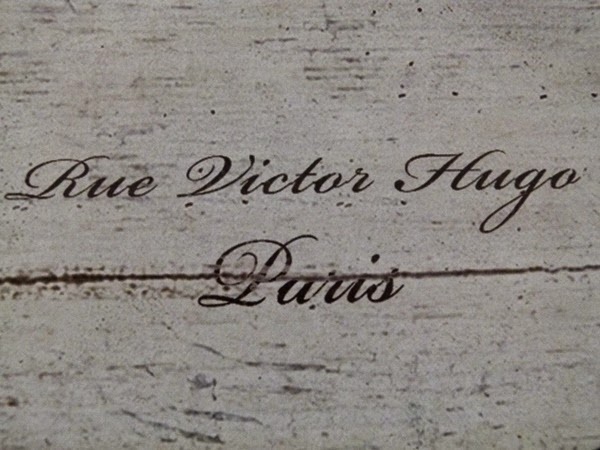 Rue Victor Hugo
Paris